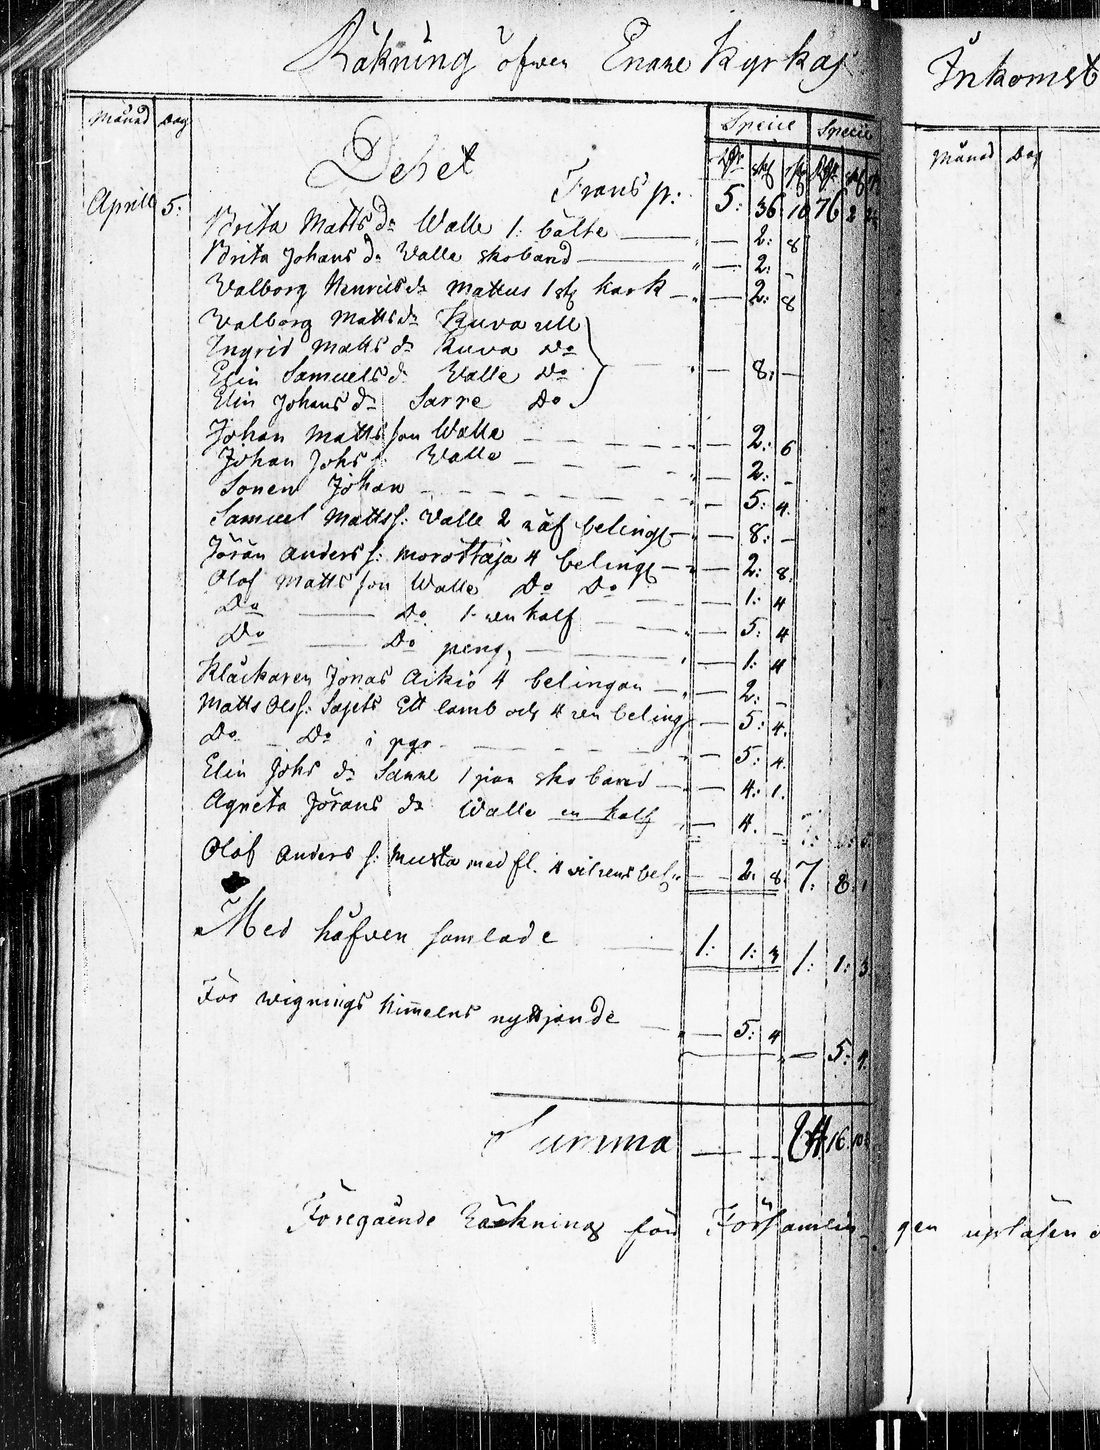 Räkning öfwer Enare Kyrkas
Inkomst
Månad Dag
Specie Specie
Debet
Månad Dag
Transp:
5: 36 10 76 2
Aprill 5:
Brita Mattsdr Walle 1: bälte — 2: 8
Brita Johans dr Walle skoband — 2: –
Walborg Henricsdr Mattus 1 st kark — 2: 8
Walborg Mattsdr Kuva ull
Ingrid Matts dr Kuva Do
Elin Samuels dr Walle Do — 8: –
Elin Johans dr Sarre Do
Johan Matts son Walle — 2: 6
Johan Johs s: Walle — 2: –
Sonen Johan — 5: 4
Samuel Mattss: Walle 2 belingr — 8: –
Jöran Anders s: Morottaja 4 belingr — 2: 8
Olof Matts son Walle Do Do — 1: 4
Do — Do 1 ren kalf — 5: 4
Do — Do peng. — 1: 4
Klåckaren Jonas Aikio 4 belingar — 2: –
Matts Olss: Sajets Ett lamb och 4 ren beling — 5: 4
Do — Do i pgr — 5: 4
Elin Johs dr Sarre 1 par sko band — 4: 1
Agneta Jörans dr Walle en kalf — 4. –
Olof Anders s: Musta med fl. 4 vilrens bel: — 2: 8 7: 8: 1
Med håfven samlade — 1: 1: 3 1: 1: 3
För wignings himelns nyttjande — 5: 4
— 5: 4
Summa — 16 10
Föregående Räkning för Församlin- gen upläsen